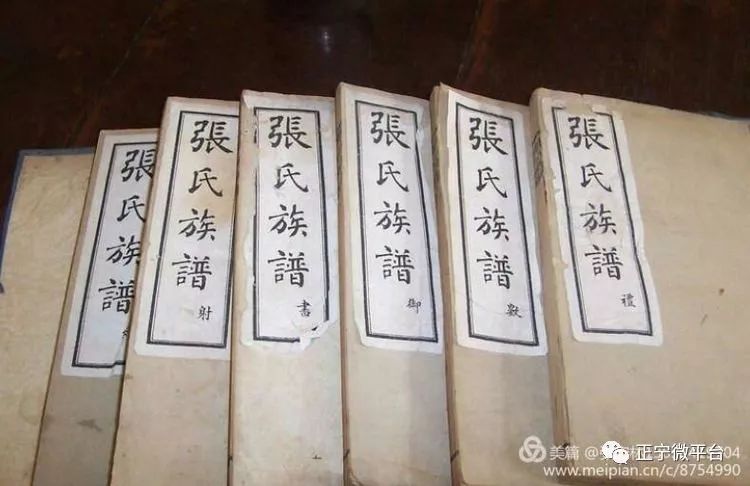 張氏族譜
張氏族譜
射
張氏族譜
書
張氏族譜
御
張氏族譜
數
張氏族譜
禮
美篇 @
04
正宁微平台
www.meipian.cn/c/8754990